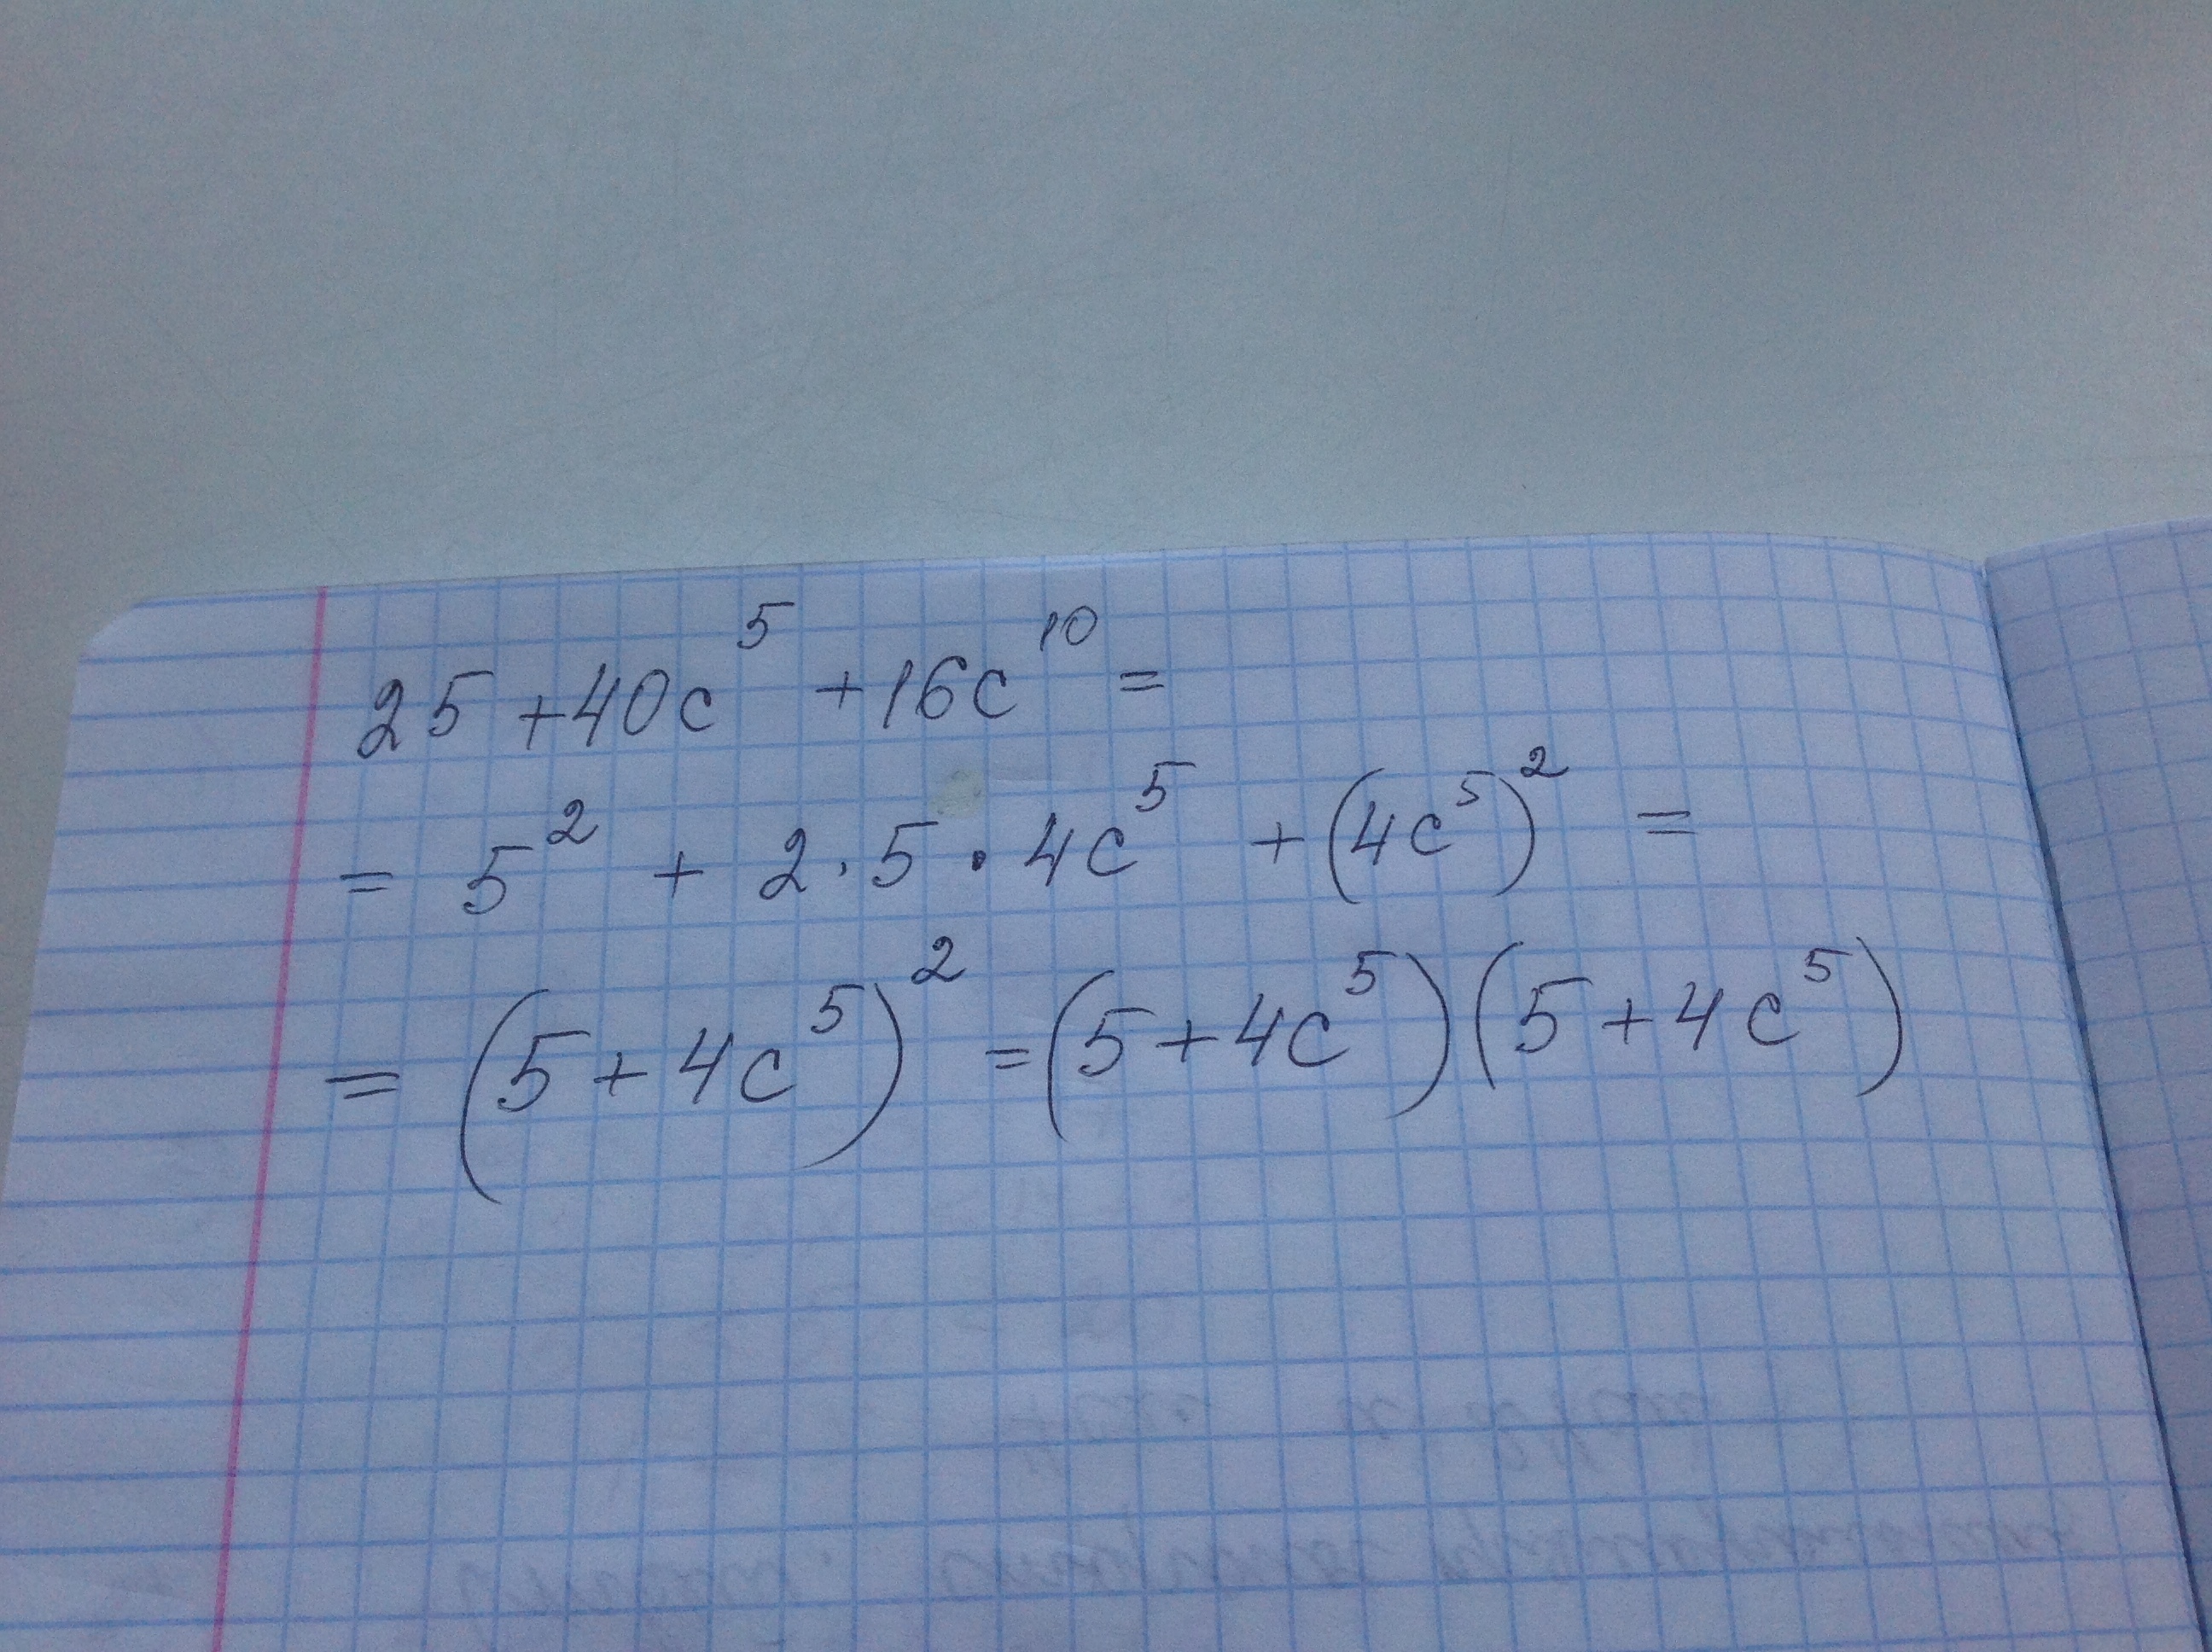 25 + 40c⁵ + 16c¹⁰ =
= 5² + 2 · 5 · 4c⁵ + (4c⁵)² =
= (5 + 4c⁵)² = (5 + 4c⁵)(5 + 4c⁵)